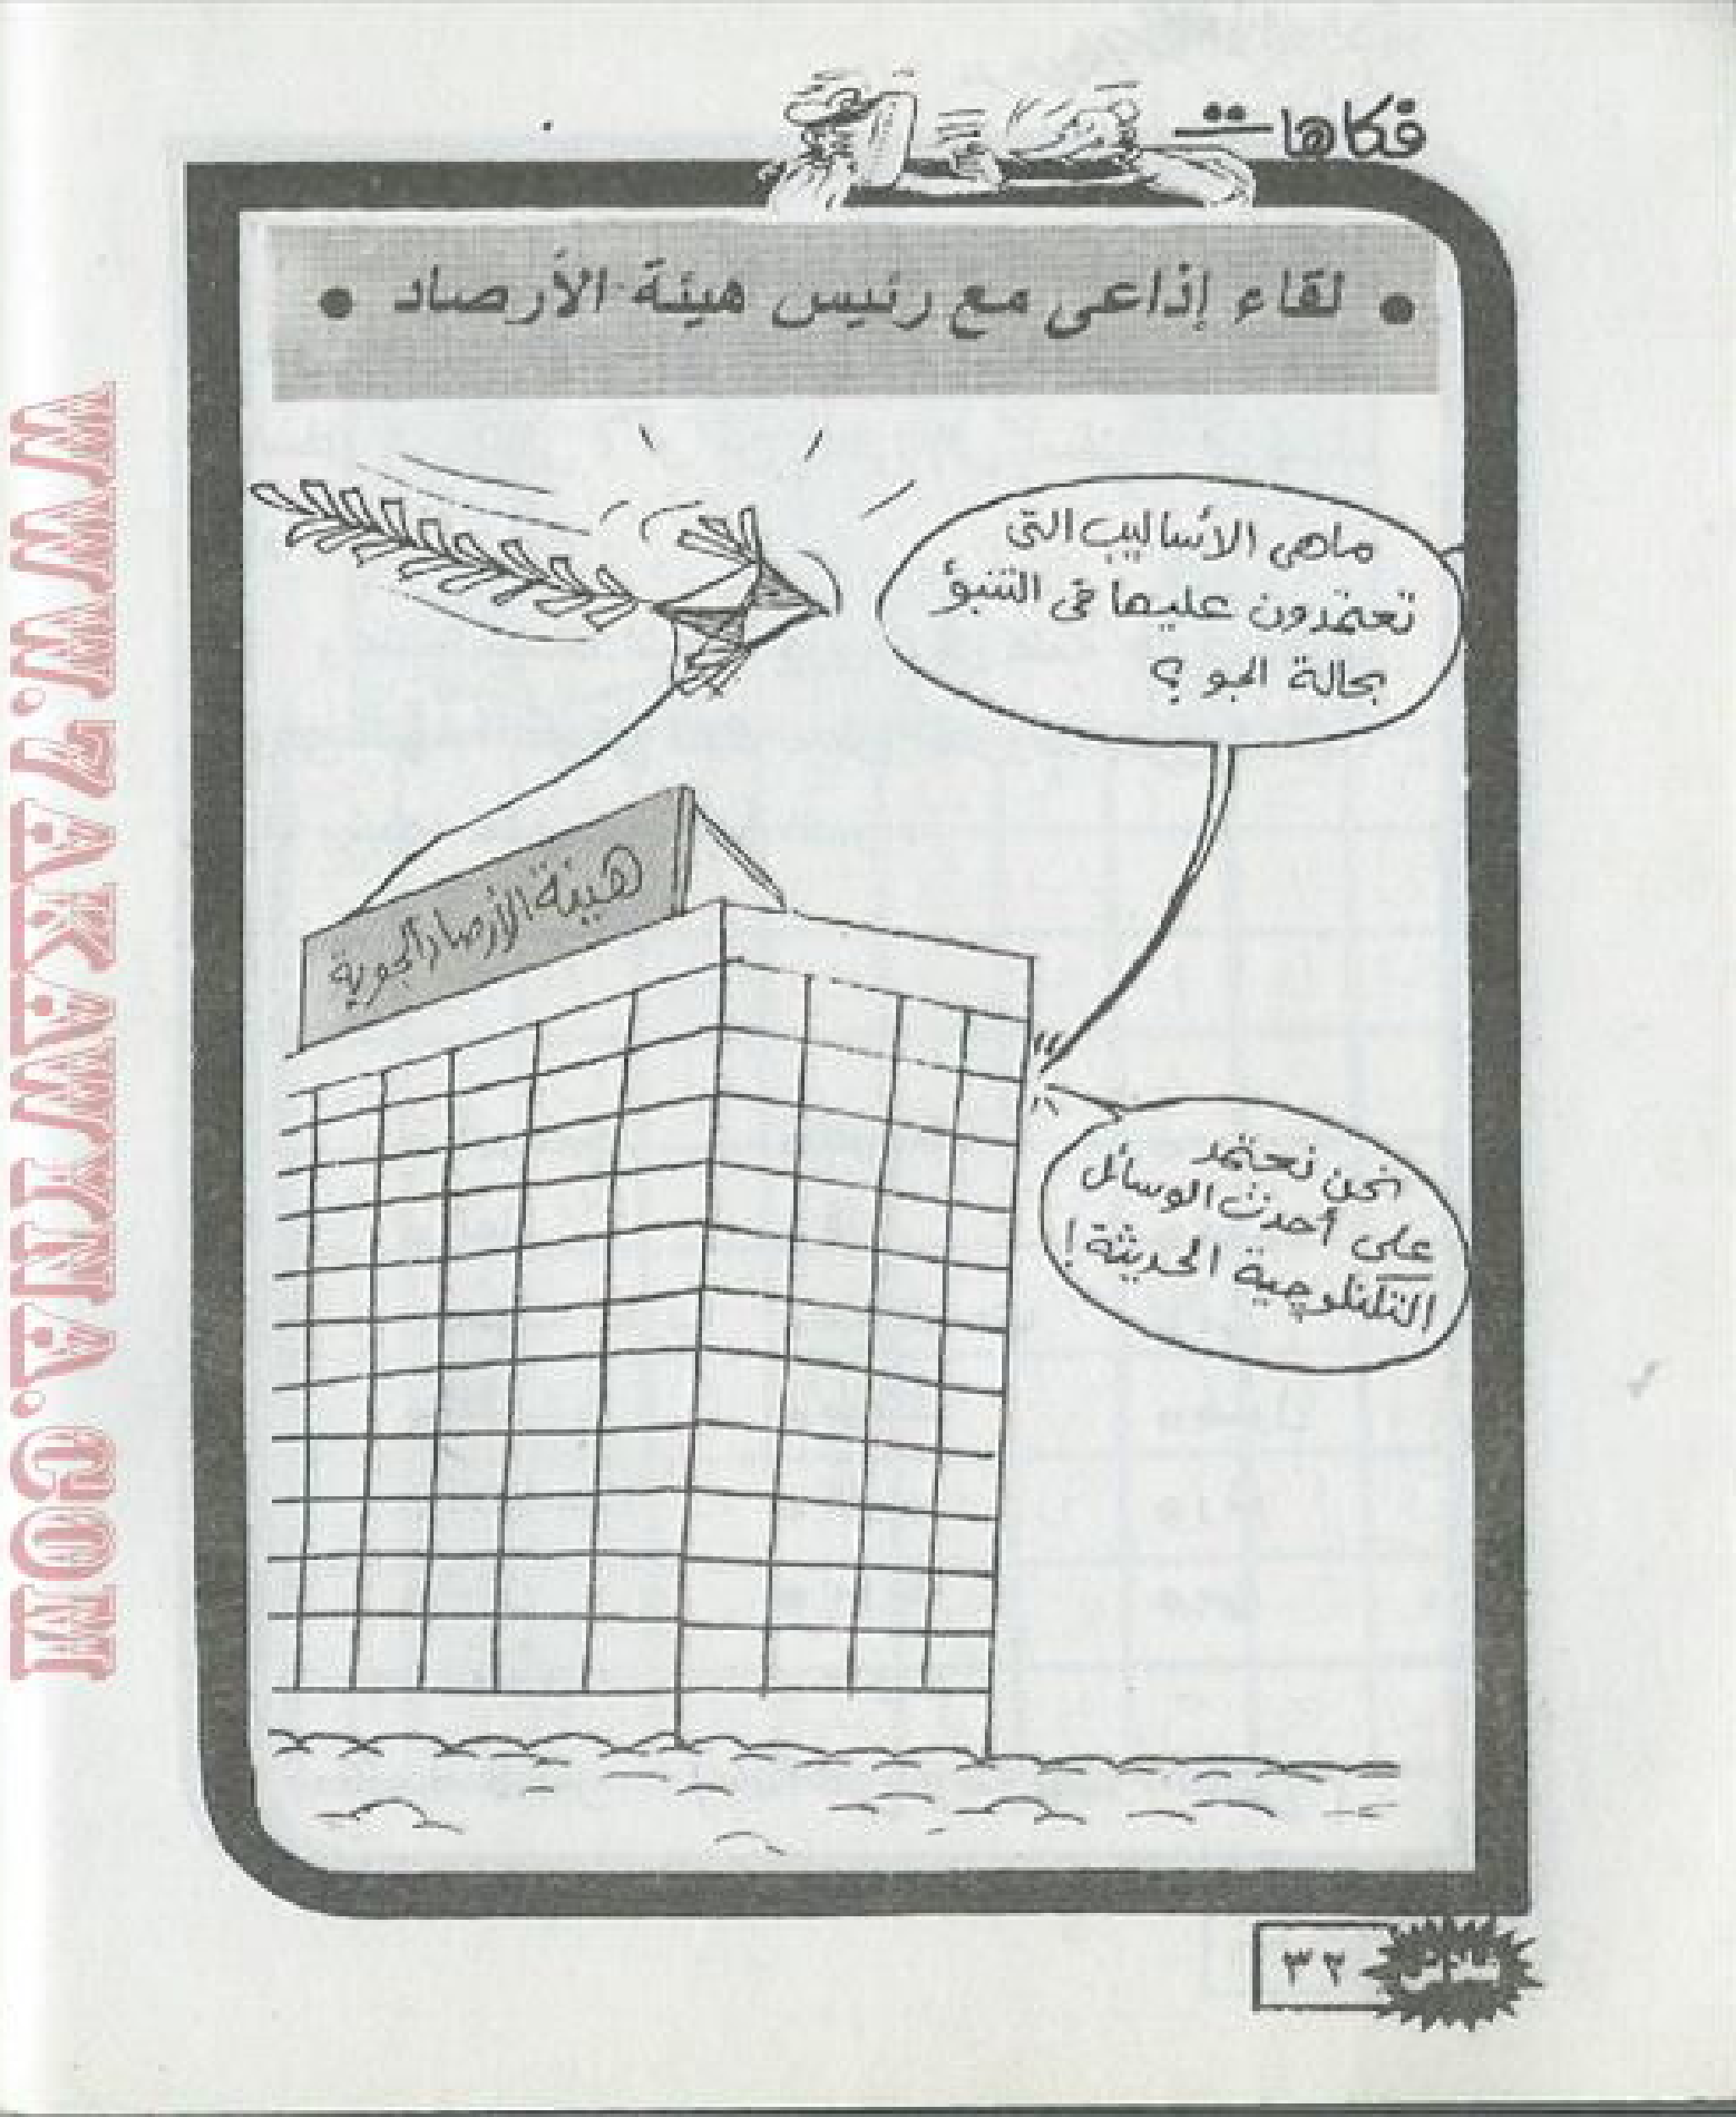 فكاهات
• لقاء إذاعى مع رئيس هيئة الأرصاد •
ماهى الأساليب التى
تعتمدون عليها فى التنبؤ
بحالة الجو ؟
هيئة الأرصاد الجوية
نحن نعتمد
على أحدث الوسائل
التكنلوجية الحديثة !
٣٢
WWW.7AKAWTNA.COM